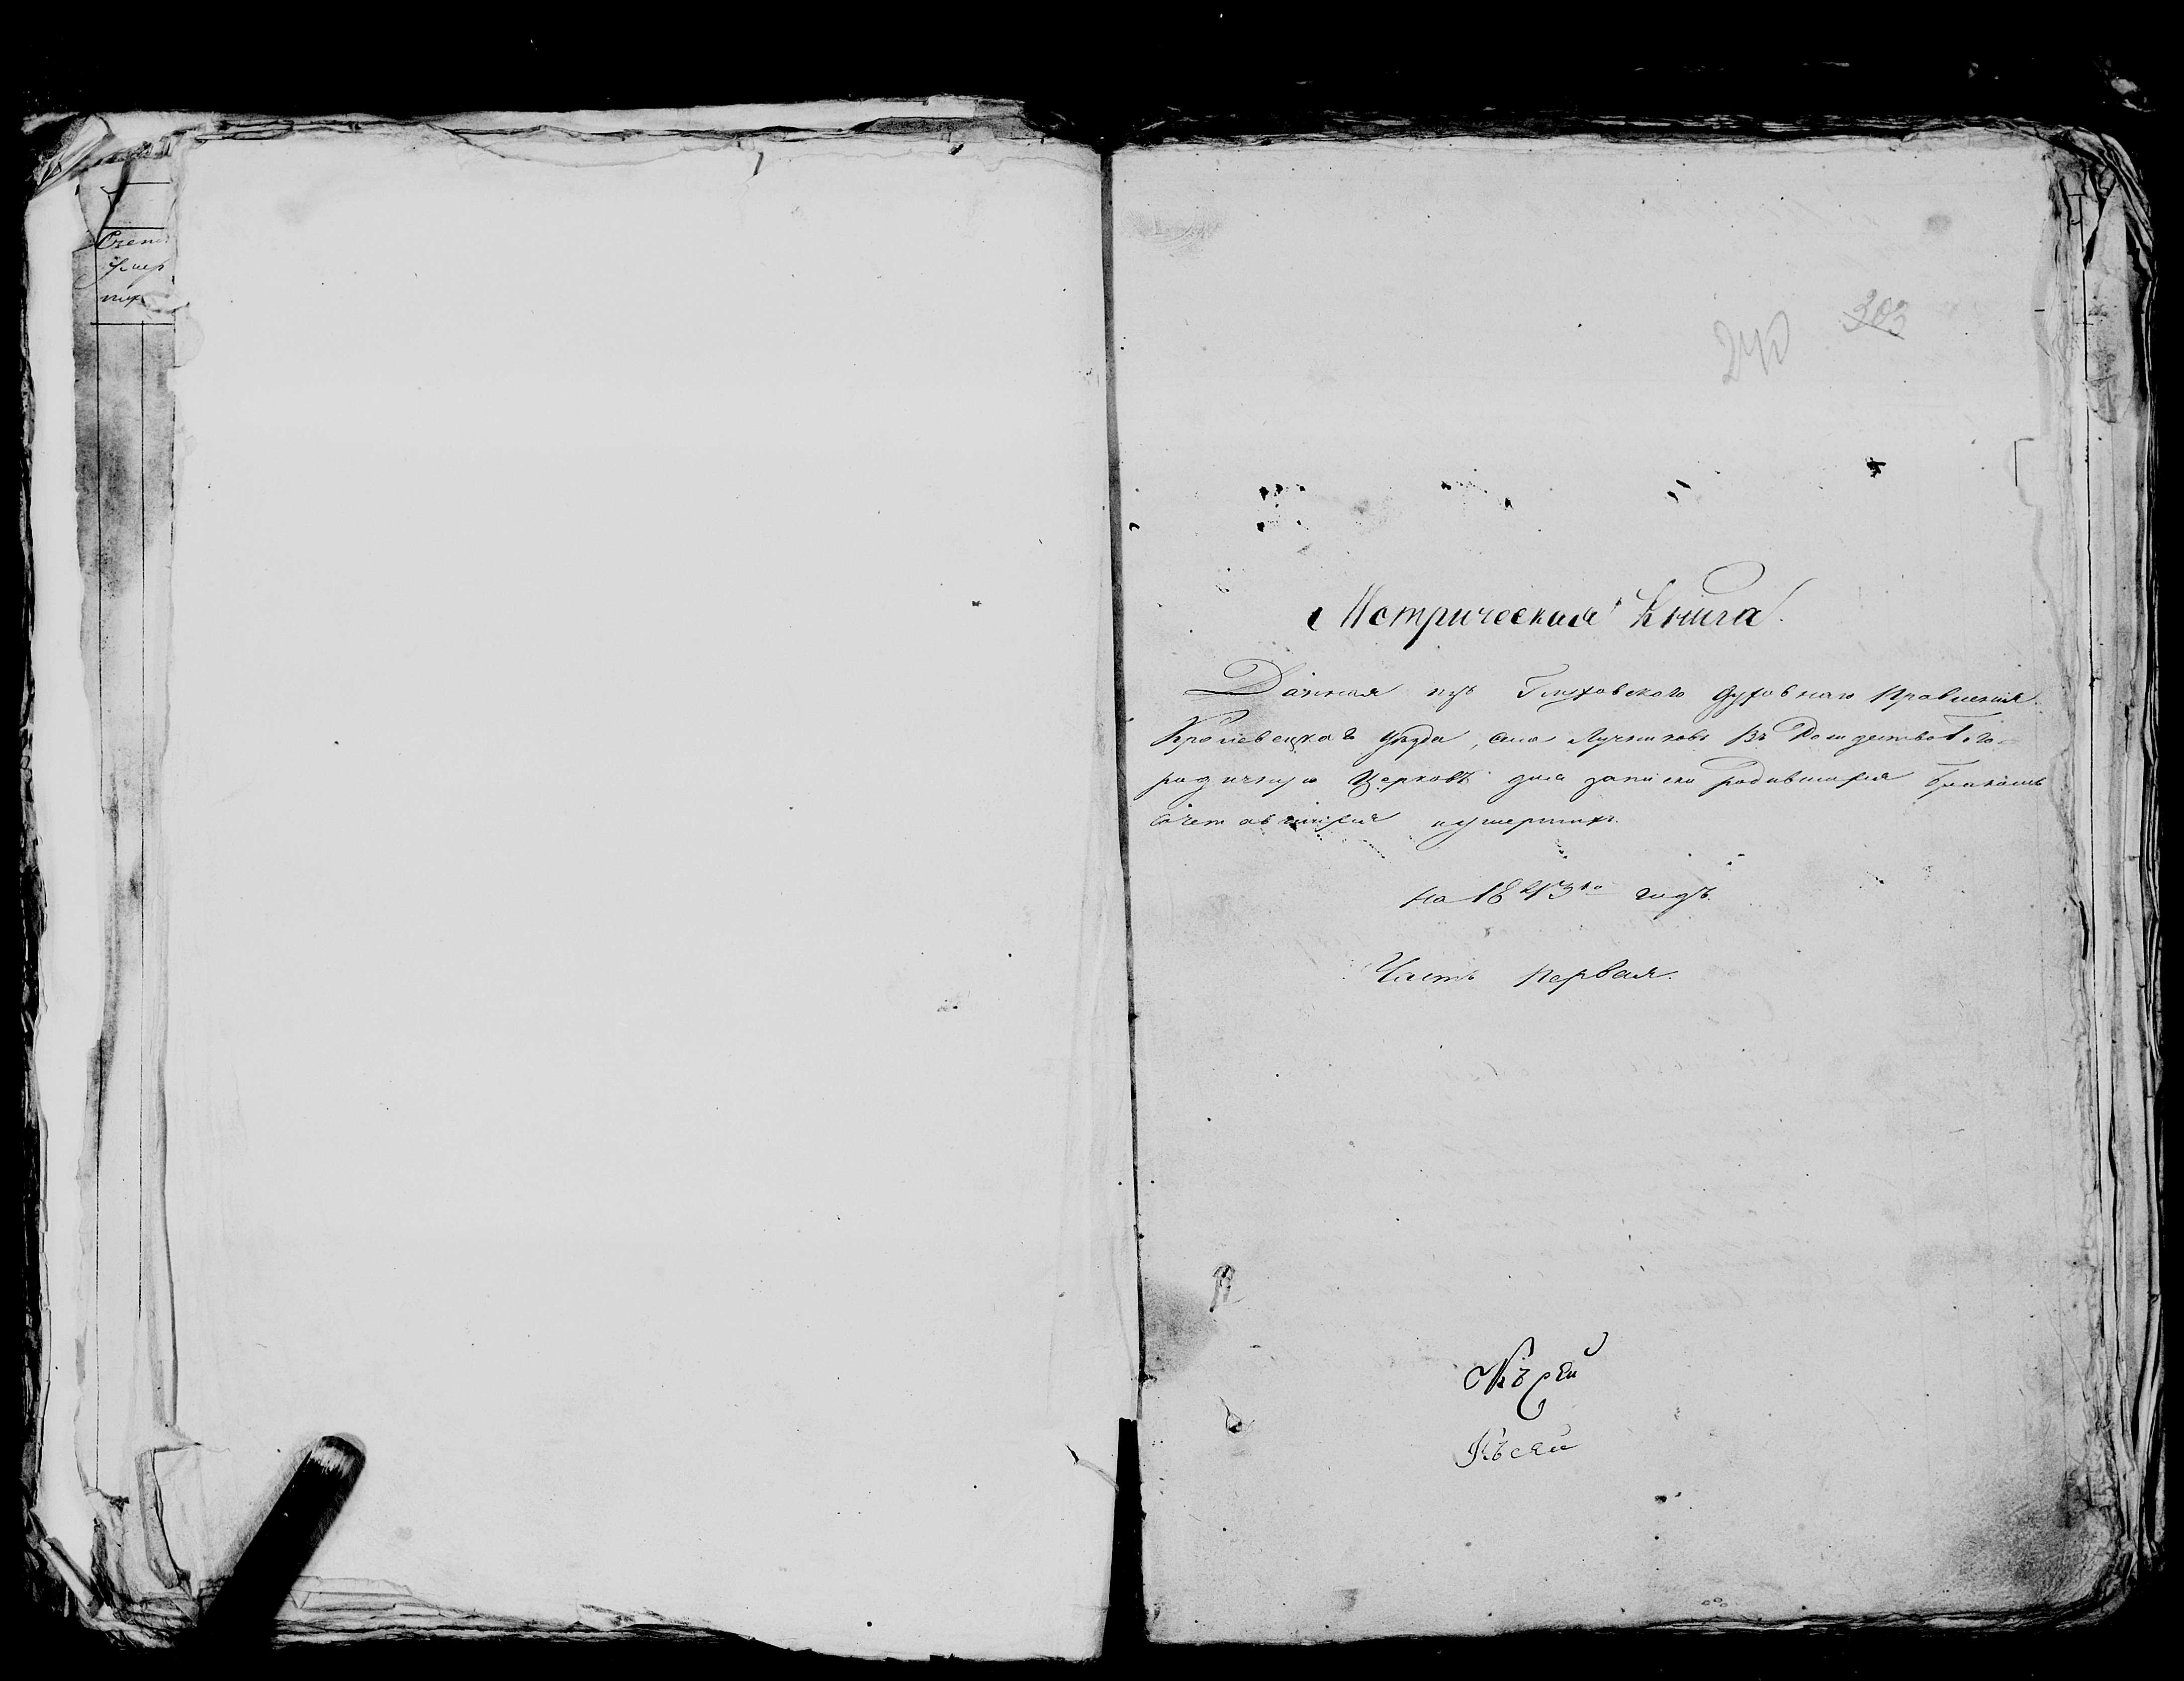 Счетъ
умер
шихъ
303
240
Метрическая Книга.
Данная изъ Глуховского Духовнаго Правления
Кролевецкаго уѣзда, села Лучниковъ въ Рождество Бого-
родичную Церковь для записи родившихся бракомъ
сочетавшихся и умершихъ.
на 1843го годъ.
Часть первая.
Къ сей
Къ сей